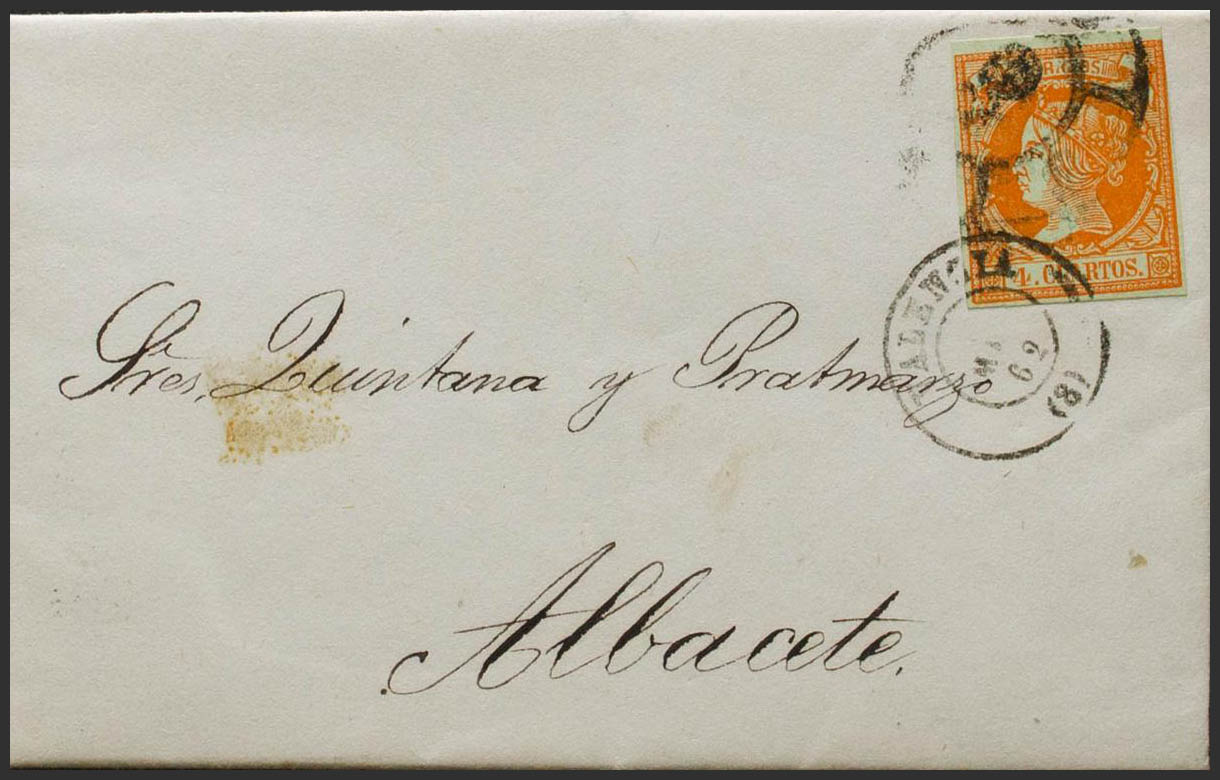 4. CUARTOS.
VALENCIA
62
(8)
Sres, Quintana y Pratmarzo
Albacete.